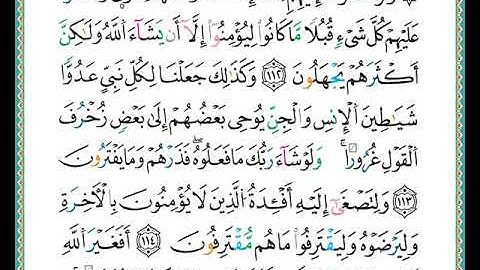 عَلَيْهِمْ كُلَّ شَىْءٍ قُبُلًا مَّا كَانُوا۟ لِيُؤْمِنُوٓا۟ إِلَّآ أَن يَشَآءَ ٱللَّهُ وَلَـٰكِنَّ
أَكْثَرَهُمْ يَجْهَلُونَ ١١٢ وَكَذَٰلِكَ جَعَلْنَا لِكُلِّ نَبِىٍّ عَدُوًّا
شَيَـٰطِينَ ٱلْإِنسِ وَٱلْجِنِّ يُوحِى بَعْضُهُمْ إِلَىٰ بَعْضٍ زُخْرُفَ
ٱلْقَوْلِ غُرُورًا ۚ وَلَوْ شَآءَ رَبُّكَ مَا فَعَلُوهُ ۖ فَذَرْهُمْ وَمَا يَفْتَرُونَ
١١٣ وَلِتَصْغَىٰٓ إِلَيْهِ أَفْـِٔدَةُ ٱلَّذِينَ لَا يُؤْمِنُونَ بِٱلْـَٔاخِرَةِ
وَلِيَرْضَوْهُ وَلِيَقْتَرِفُوا۟ مَا هُم مُّقْتَرِفُونَ ١١٤ أَفَغَيْرَ ٱللَّهِ